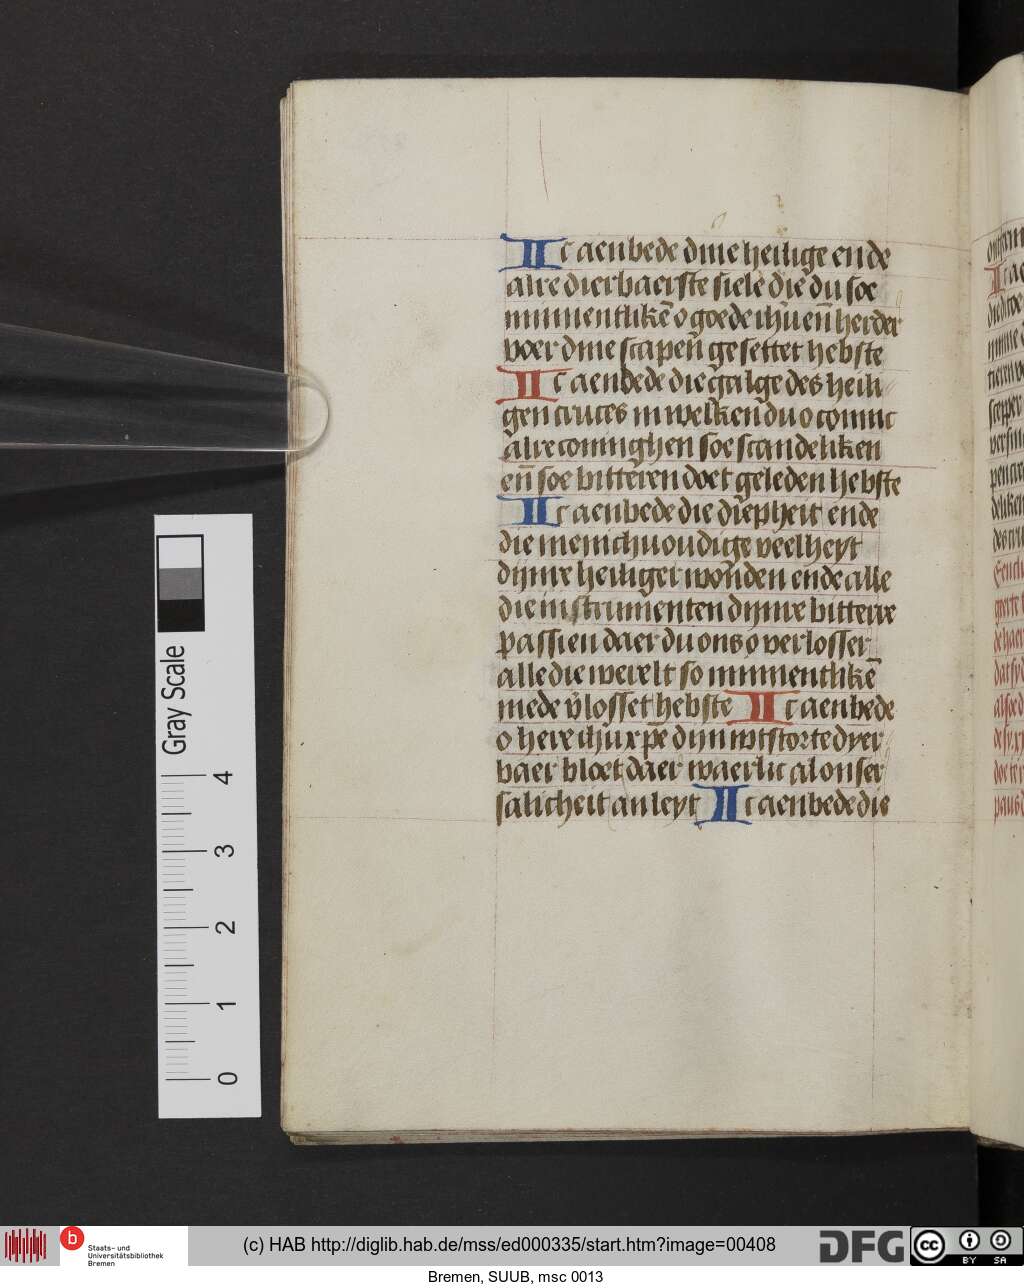 Ic aenbede dine heilige ende
alre dierbaerste siele die du soe
minnentlikē o goede ihū eñ herder
voer dine scapen gesettet hebste
Ic aenbede die galge des heili
gen cruces in welken du o coninc
alre coninghen soe scandeliken
eñ soe bitteren doet geleden hebste
Ic aenbede die diepheit ende
die menichuoudige veelheyt
dijnre heiliger wonden ende alle
die instrumenten dijnre bitterre
passien daer du ons o verlosser
alle die werelt so minnentlikē
mede v̄losset hebste Ic aenbede
o here ihū xp̄e dijn wtstorte dyer
baer bloet daer waerlic al onser
salicheit an leyt Ic aenbede die
Gray Scale
4
3
2
1
0
b
Staats- und
Universitätsbibliothek
Bremen
(c) HAB http://diglib.hab.de/mss/ed000335/start.htm?image=00408
DFG
cc
BY SA
Bremen, SUUB, msc 0013